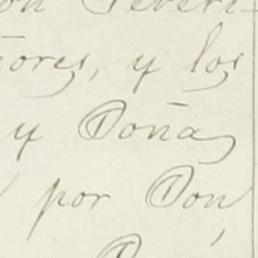 on Severi-
ñores, y los
y Doña
por Don
D